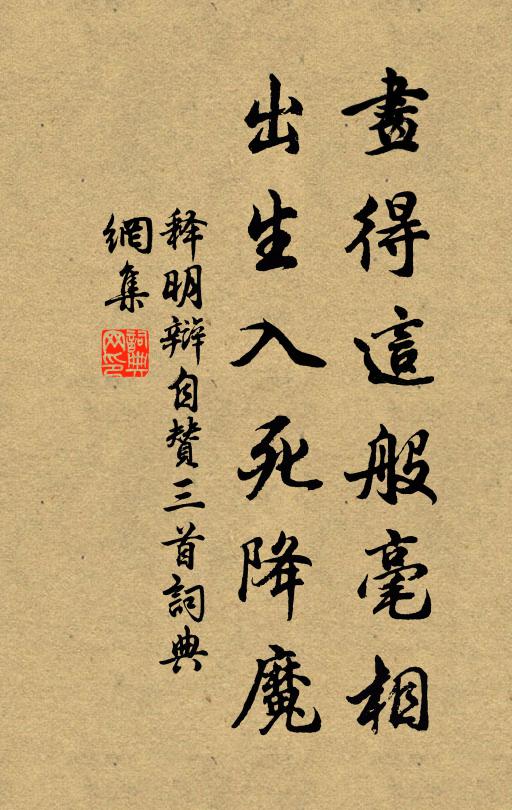 畫得這般毫相
出生入死降魔
释明辯自贊三首詞典
網集
詞典
网印